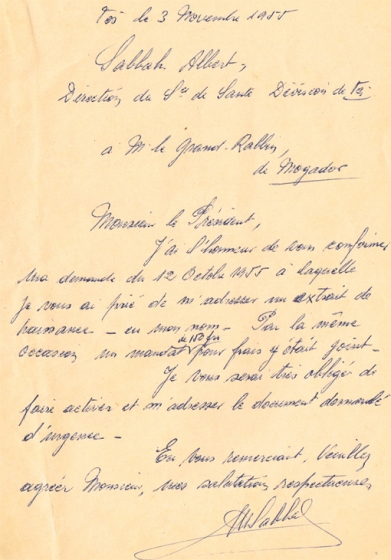 Fès le 3 Novembre 1955
Sabbah Albert,
Direction du Sce de Sante Division de Fès
à M. le Grand-Rabbin,
de Mogador
Monsieur le Président,
J'ai l'honneur de vous confirmer
ma demande du 12 Octobre 1955 à laquelle
je vous ai prié de m'adresser un extrait de
naissance - en mon nom - Par la même
de 150 frs
occasion un mandat pour frais y était joint -
Je vous serai très obligé de
faire activer et m'adresser le document demandé
d'urgence -
En vous remerciant, Veuillez
agréer Monsieur, mes salutations respectueuses